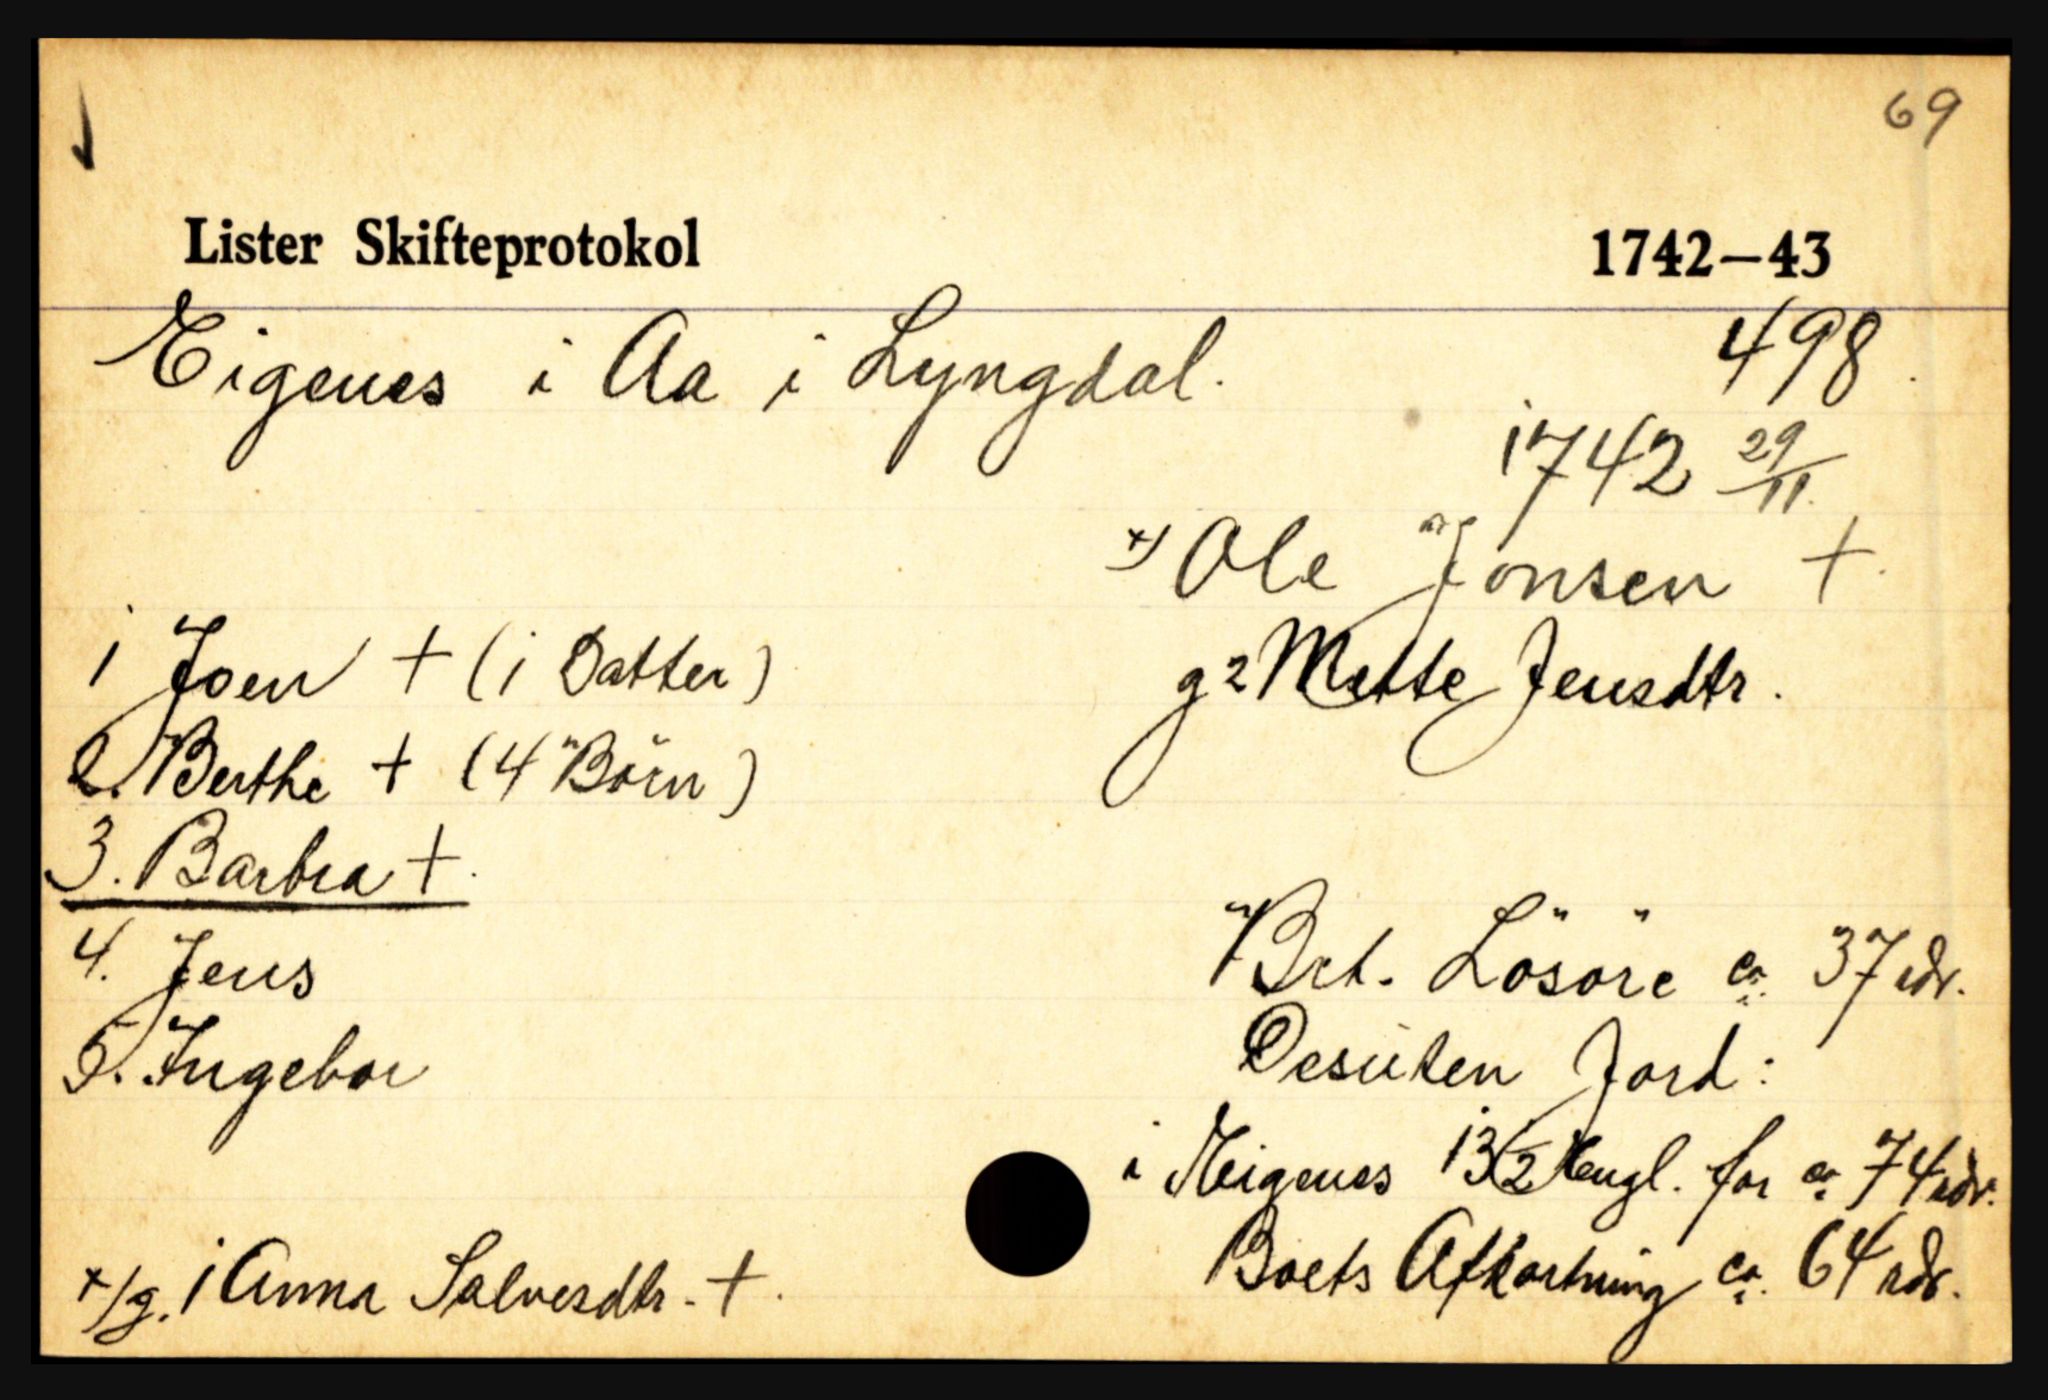 69
Lister Skifteprotokol 1742–43
Eigenes i Aa i Lyngdal. 498.
1742 29/11.
x/ Ole Jonsen +.
g 2 Mette Jensdtr.
1 Joen + (1 Datter)
2. Berthe + (4 Börn)
3. Barbra +.
4. Jens
5. Ingebor
Brt. Lösöre ca. 37 rdr.
Desuten Jord:
i Eigenes 13 1/2 Engl. for ca. 74 rdr.
Boets Afkortning ca. 64 rdr.
x/g. 1 Anna Salvesdtr. +.